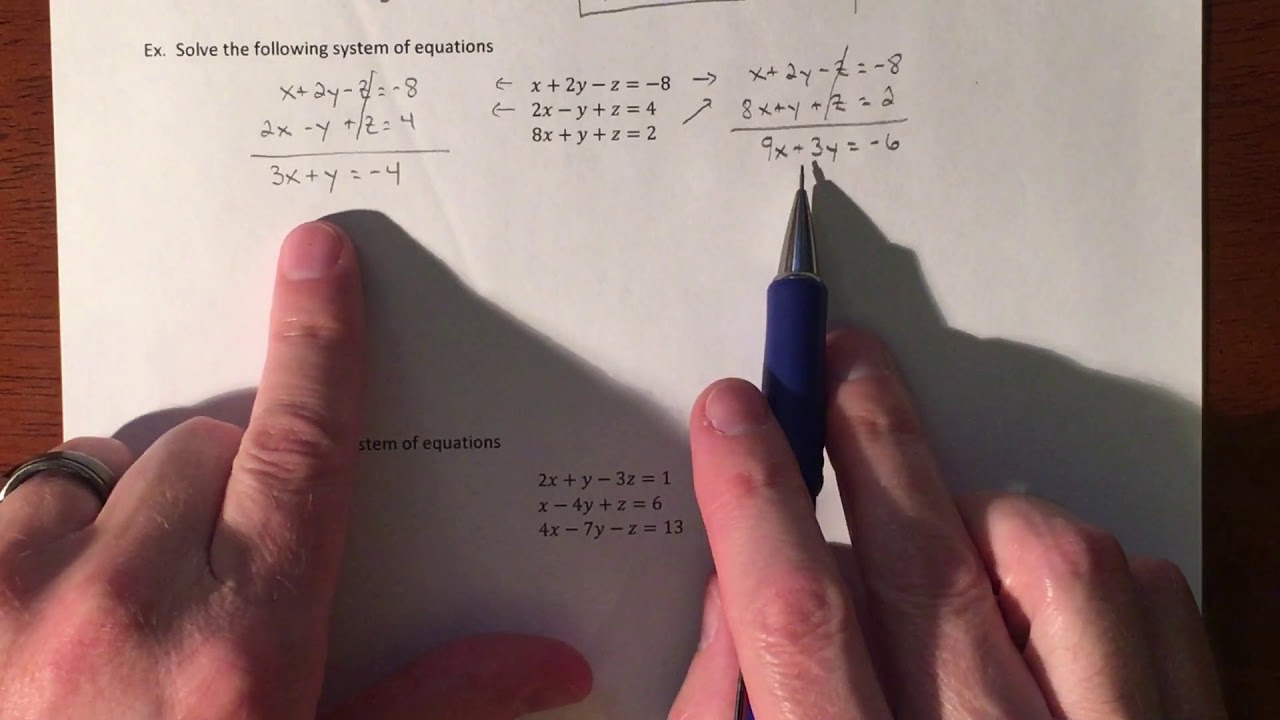 Ex. Solve the following system of equations
x+2y-z=-8
2x-y+z=4
3x+y=-4
← x + 2y − z = −8 →
← 2x − y + z = 4
8x + y + z = 2 ↗
x+2y-z=-8
8x+y+z=2
9x+3y=-6
stem of equations
2x + y − 3z = 1
x − 4y + z = 6
4x − 7y − z = 13